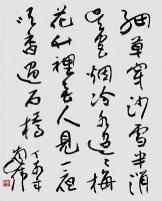 细草穿沙雪半消
吴宫烟冷水迢迢梅
花竹裡无人见一夜
吹香過石橋